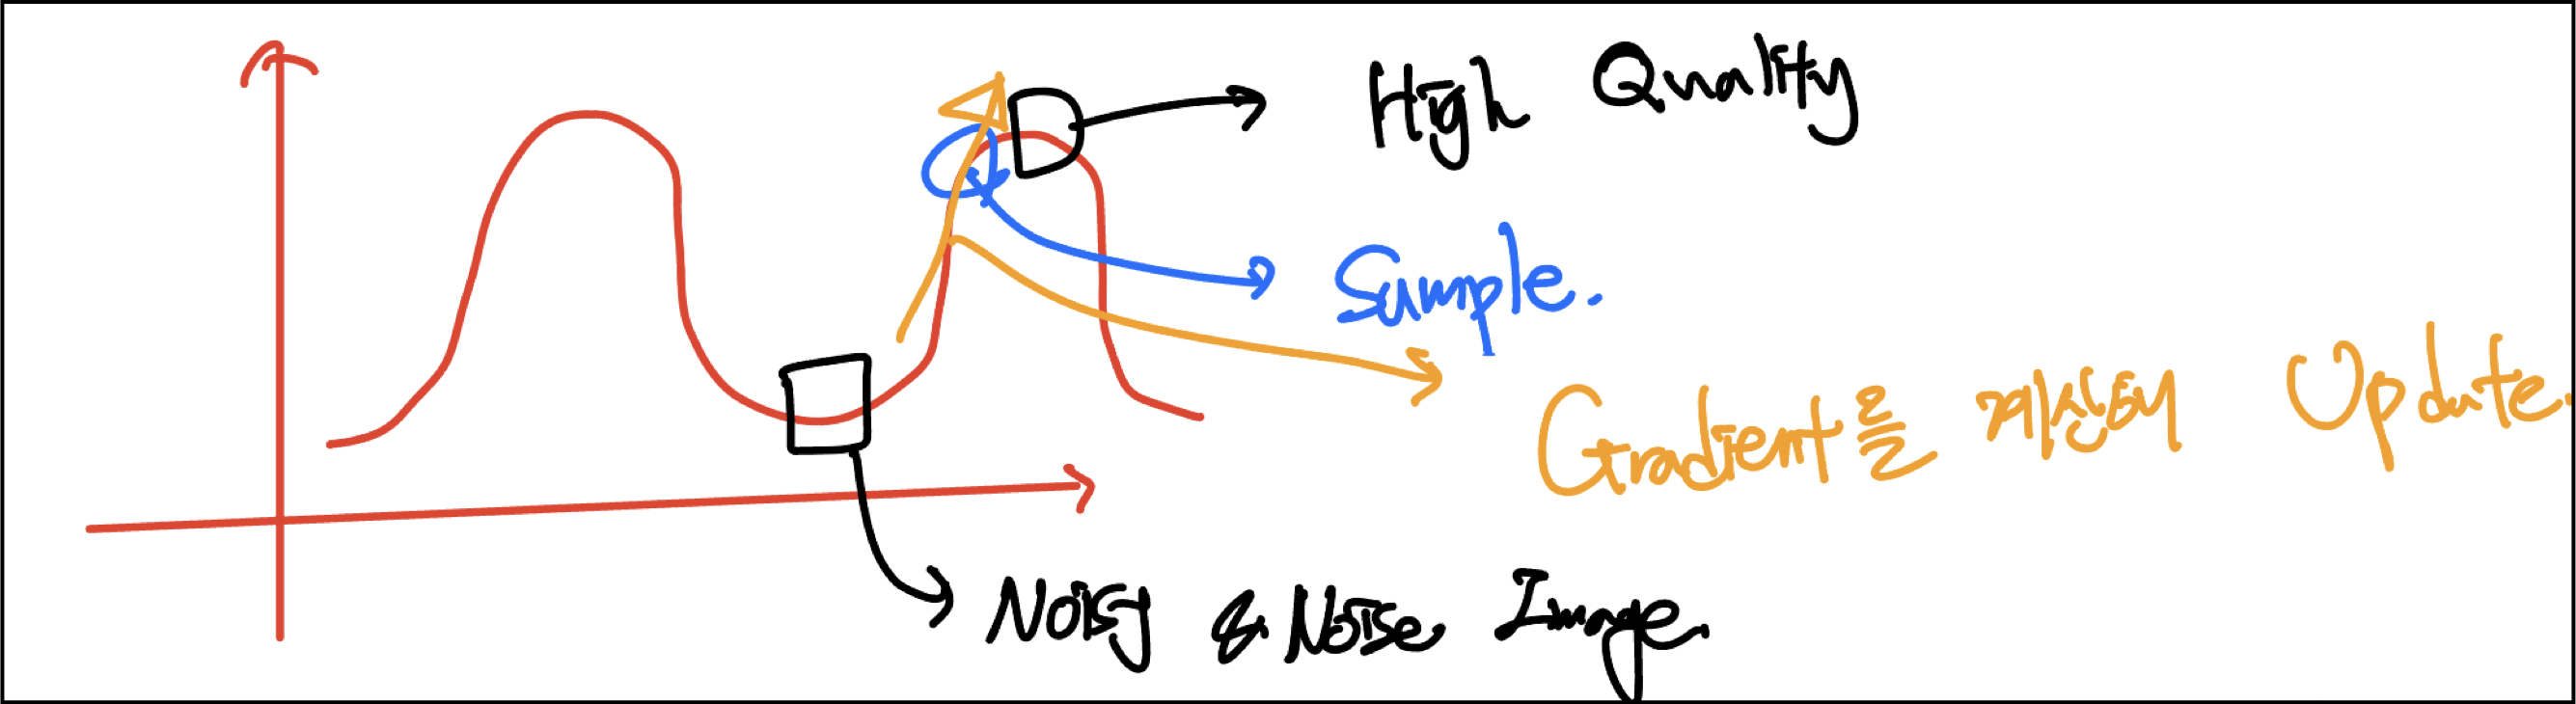 High Quality
Sample.
Gradient를 계산해서 Update.
Noisy & Noise Image.